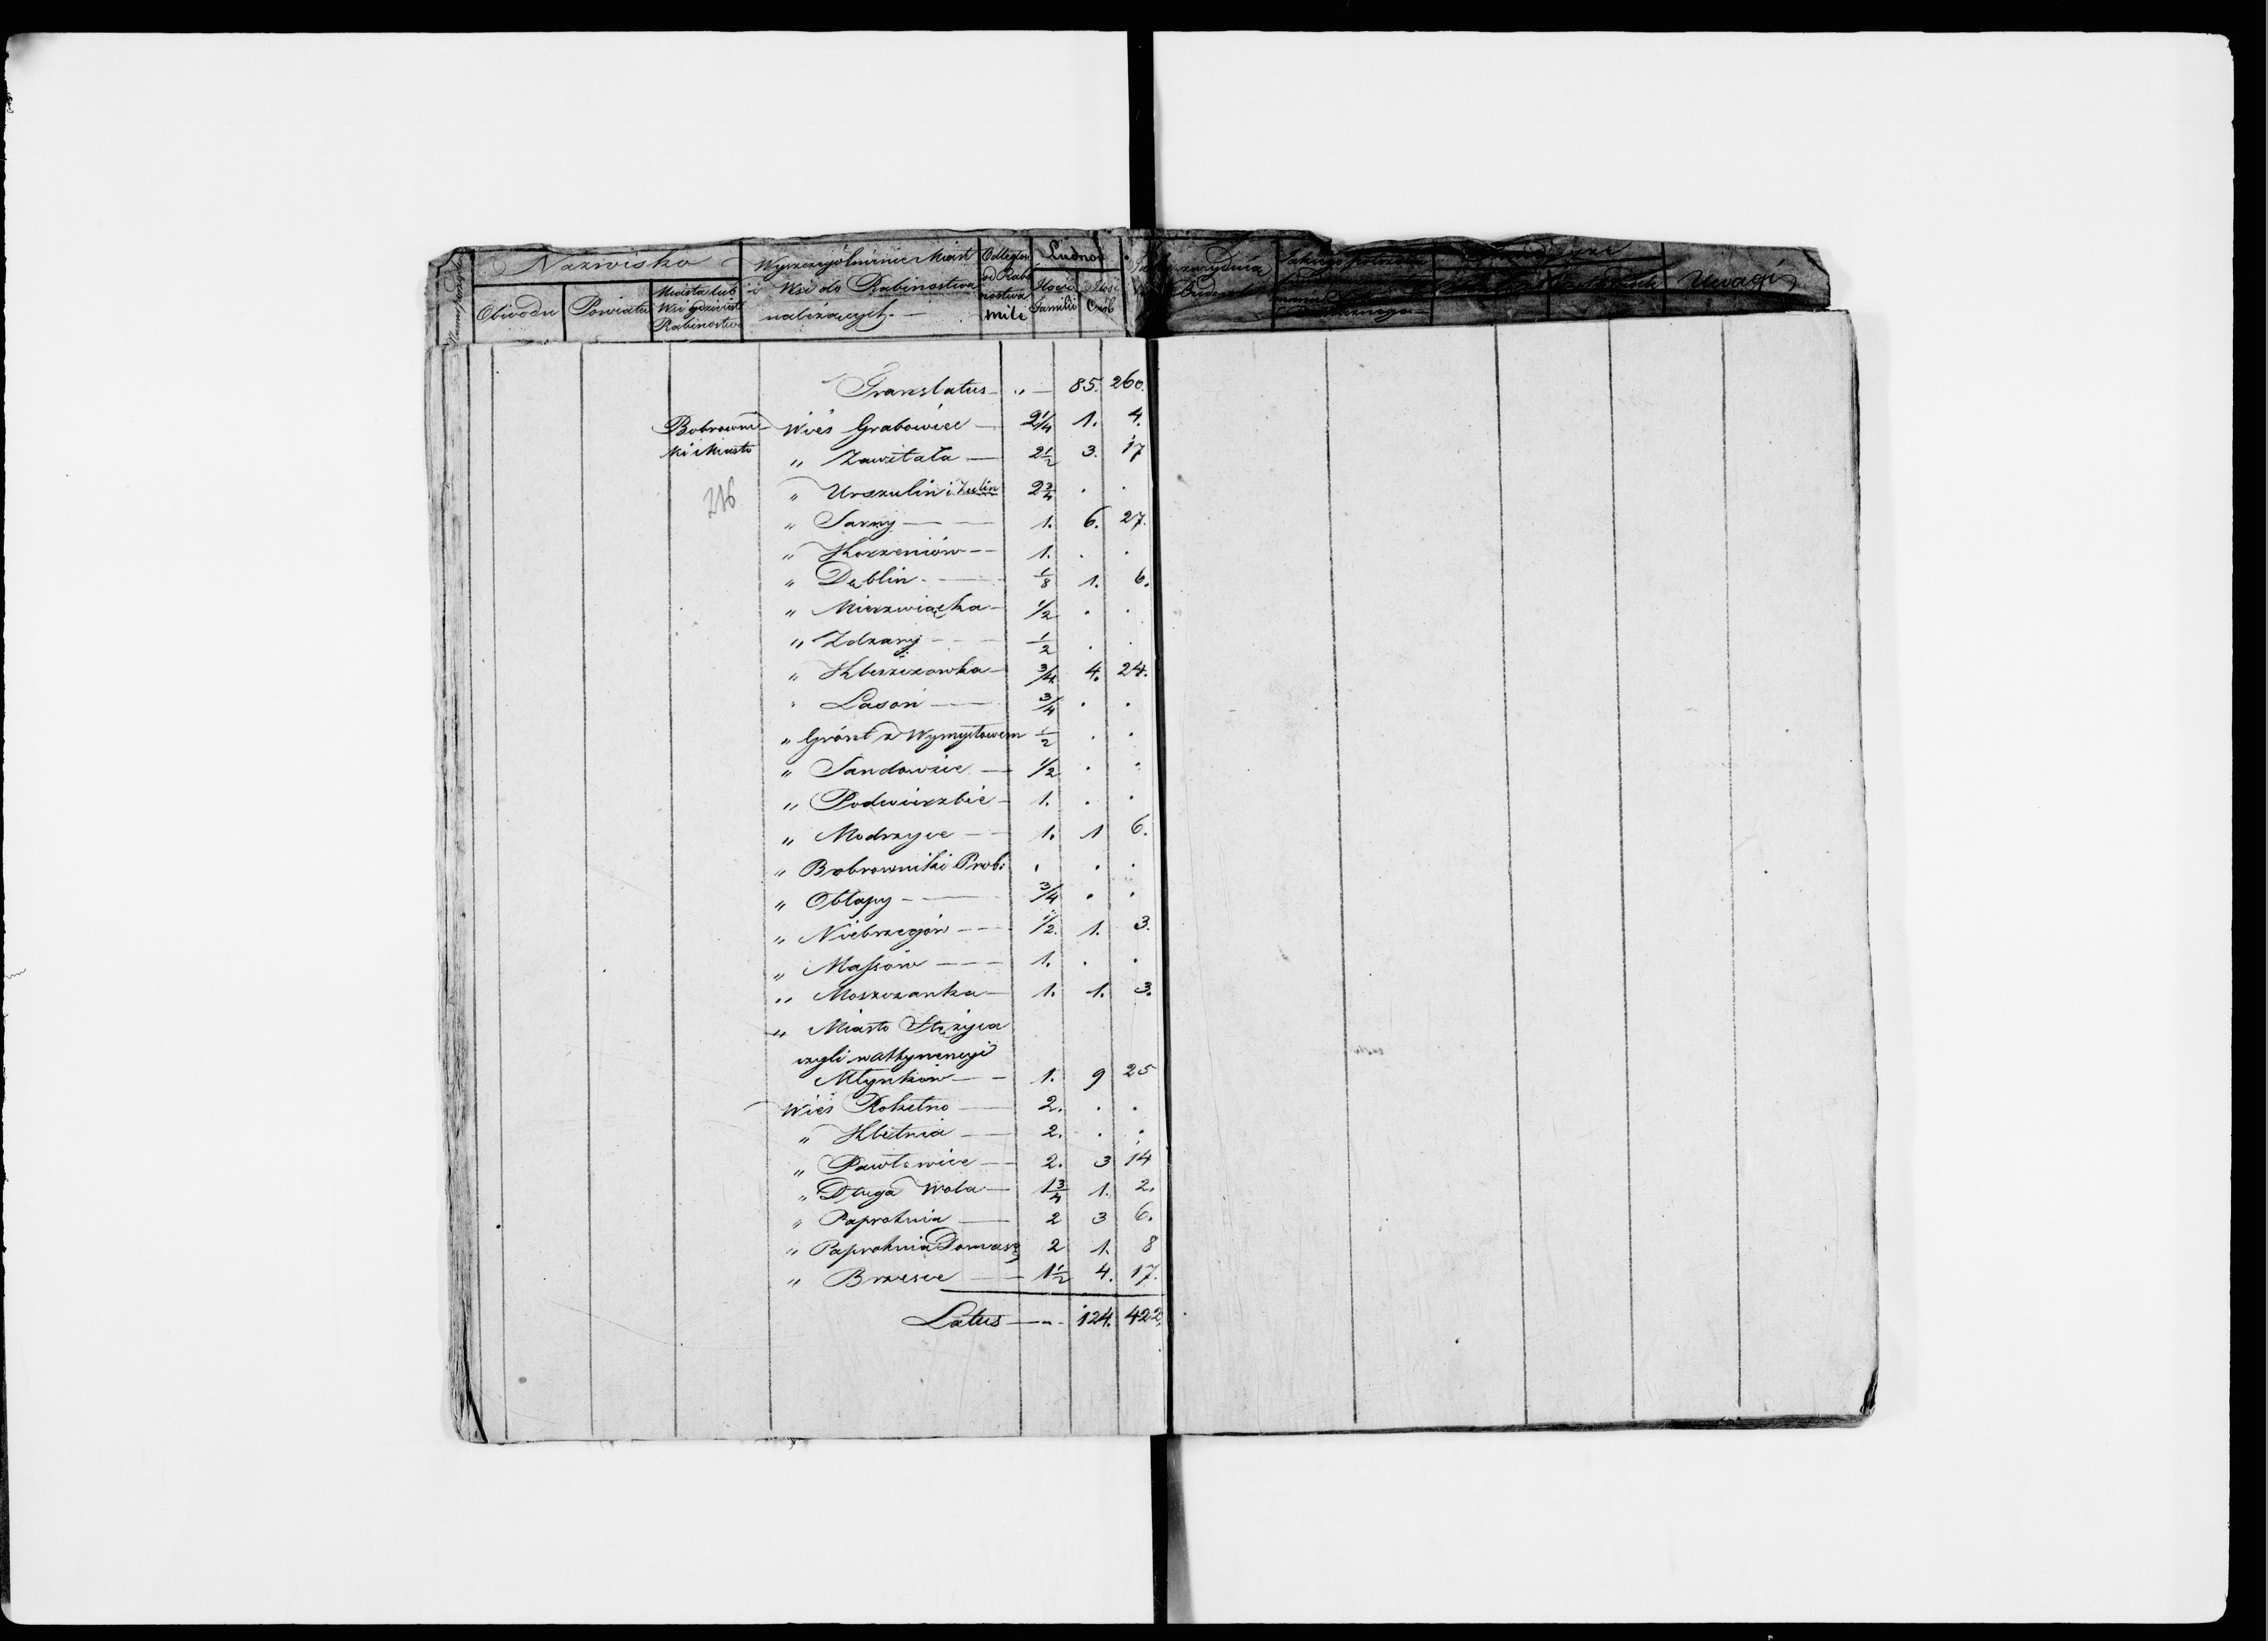 Nazwisko
Obwodu Powiatu Miasta lub Wsi gdzie jest Rabinostwo
Wyszczególnienie Miast i Wsi do Rabinostwa należących.
Odległość od Rabinostwa mile
Ludność
Ilość Familii Ilość Osób
Uwagi
Translatus „ 85. 260.
Bobrowni- Wieś Grabowice 2 1/4 1. 4.
ki Miasto „ Zawitała 2 1/2 3. 17
216 „ Urszulin i Zulin 2 3/4 . .
„ Sarny 1. 6. 27.
„ Korzeniów 1. . .
„ Dęblin 1/8 1. 6.
„ Mierzwiączka 1/2 . .
„ Zdżary 1/2 . .
„ Kleszczowka 3/4 4. 24.
„ Lasoń 3/4 . .
„ Grónt z Wymysłowem 1/2 . .
„ Sandowice 1/2 . .
„ Podwierzbie 1. . .
„ Modrzyce 1. 1 6.
„ Bobrowniki Prob: . . .
„ Obłapy 3/4 . .
„ Niebrzegów 1/2. 1. 3.
„ Massów 1. . .
„ Moszczanka 1. 1. 3.
„ Miasto Stężyca
czyli w attynencyi
Młynków 1. 9 25
Wieś Rokitno 2. . .
„ Kletnia 2. . .
„ Pawłowice 2. 3 14
„ Długa Wola 1 3/4 1. 2.
„ Paprotnia 2 3 6.
„ Paprotnia Domasz 2 1. 8
„ Brzesce 1 1/2 4. 17.
Latus 124. 422.